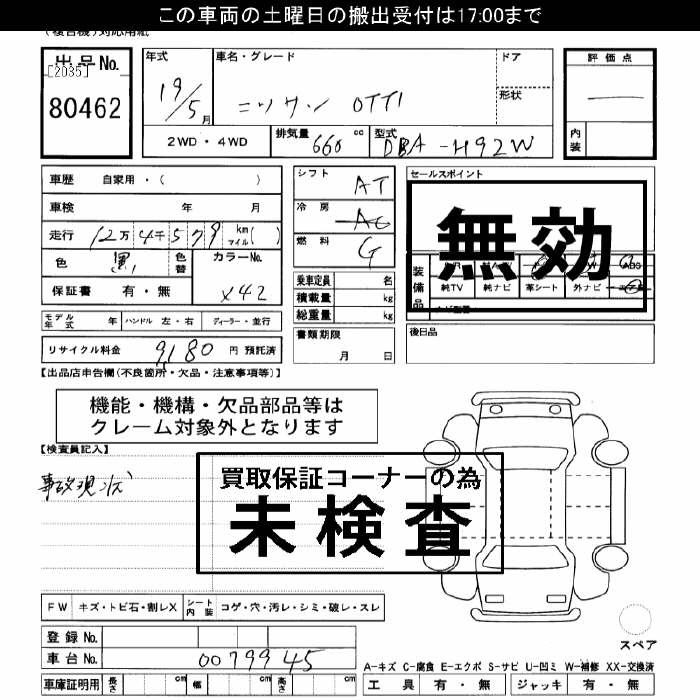 この車両の土曜日の搬出受付は17:00まで
(複合機)対応用紙
出品No.
[2035]
80462
年式
19/5月
車名・グレード
ニッサン OTTI
ドア
形状
評価点
内装
2WD・4WD
排気量 660 cc
型式 DBA-H92W
車歴 自家用・( )
車検 年 月
走行 12万4千579 km マイル( )
色 黒
色替
カラーNo. X42
保証書 有・無
モデル年式 年
ハンドル 左・右
ディーラー・並行
リサイクル料金 9180 円 預託済
シフト AT
冷房 AC
燃料 G
乗車定員 名
積載量 kg
総重量 kg
書類期限
月 日
セールスポイント
無効
装備品
ABS
純TV 純ナビ 革シート 外ナビ
後日品
【出品店申告欄(不良箇所・欠品・注意事項等)】
機能・機構・欠品部品等は
クレーム対象外となります
【検査員記入】
事故現状
買取保証コーナーの為
未検査
FW キズ・トビ石・割レX
シート内装 コゲ・穴・汚レ・シミ・破レ・スレ
登録No.
車台No. 0079945
車庫証明用 長さ cm 幅 cm 高さ cm
スペア
A-キズ C-腐食 E-エクボ S-サビ U-凹ミ W-補修 XX-交換済
工具 有・無 ジャッキ 有・無